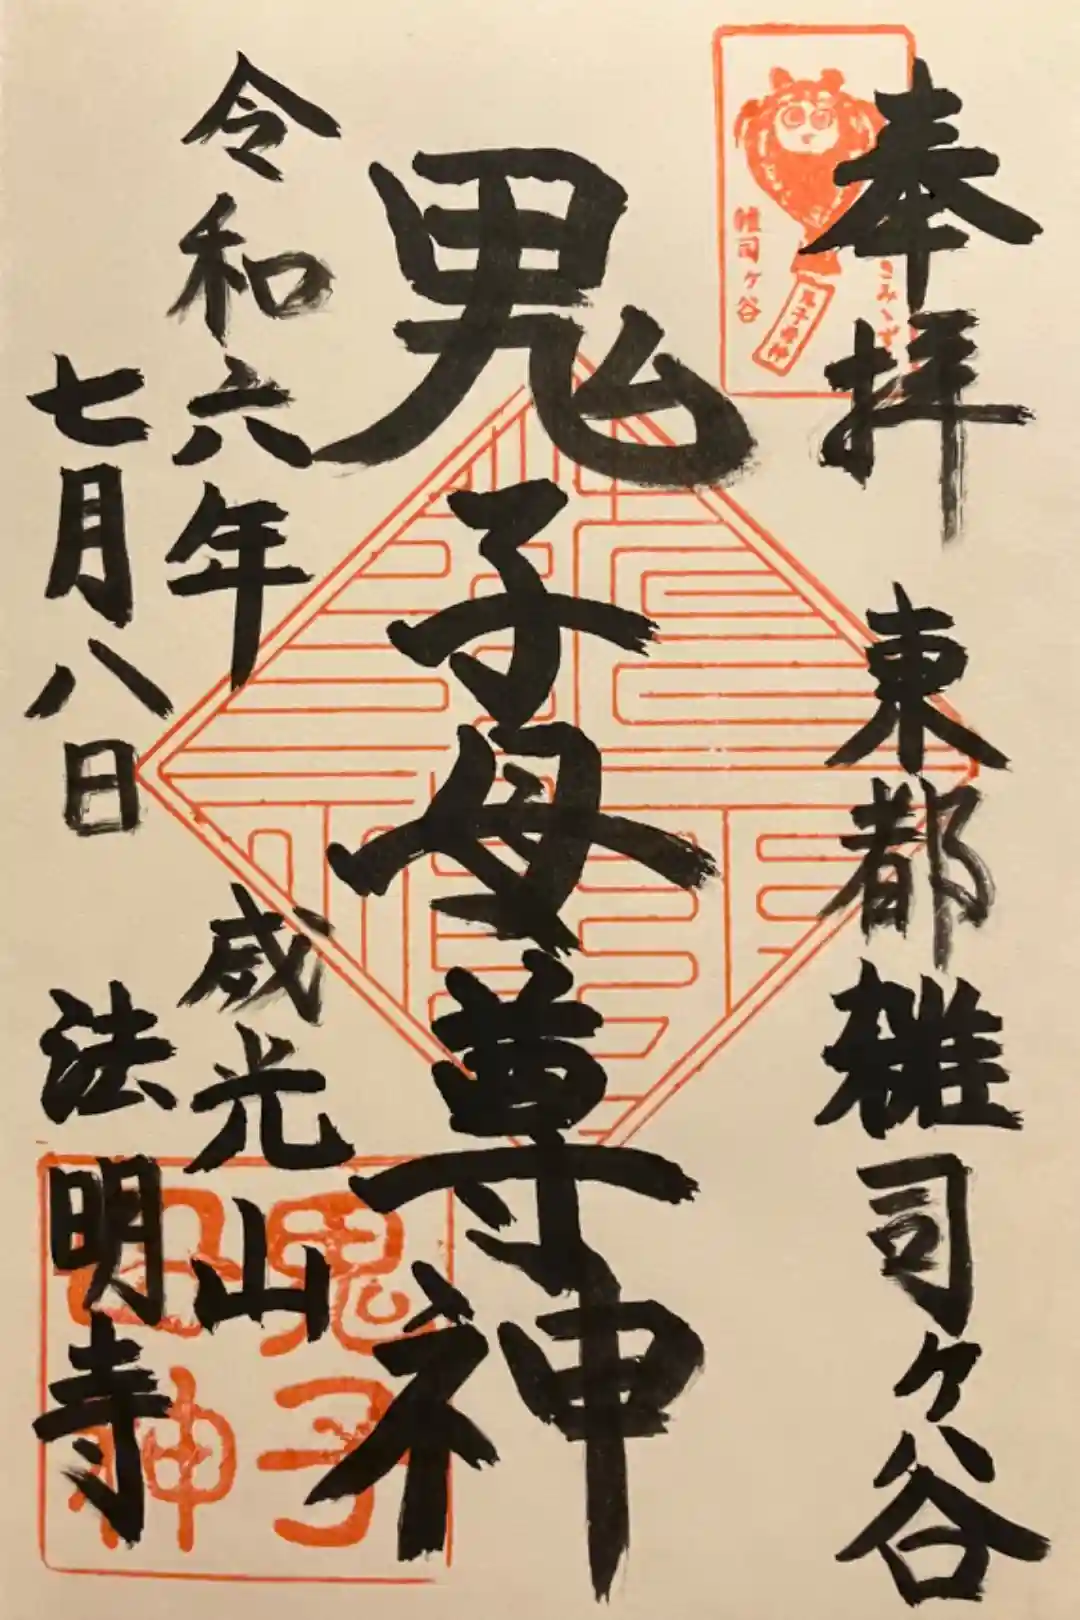 奉拝
東都雑司ヶ谷
鬼子母尊神
令和六年
七月八日
威光山
法明寺
雑司ヶ谷
鬼子母神
鬼子母神